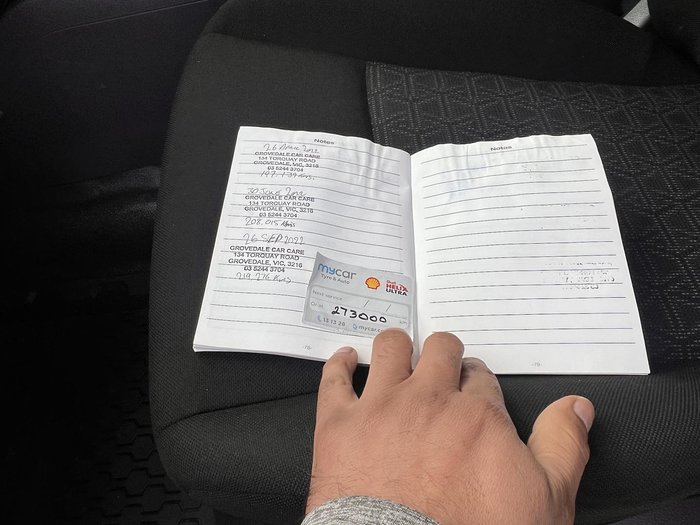 Notes
26 APRIL 2022
GROVEDALE CAR CARE
134 TORQUAY ROAD
GROVEDALE, VIC, 3216
03 5244 3704
197.139 kms.
30 June 2022
GROVEDALE CAR CARE
134 TORQUAY ROAD
GROVEDALE, VIC, 3216
03 5244 3704
208.015 kms
26 SEP 2022
GROVEDALE CAR CARE
134 TORQUAY ROAD
GROVEDALE, VIC, 3216
03 5244 3704
219.276 kms
mycar
Tyre & Auto
Shell
HELIX
ULTRA
Next service / /
Or at 273000 km
13 13 28 mycar.co
-78-
Notes
-79-